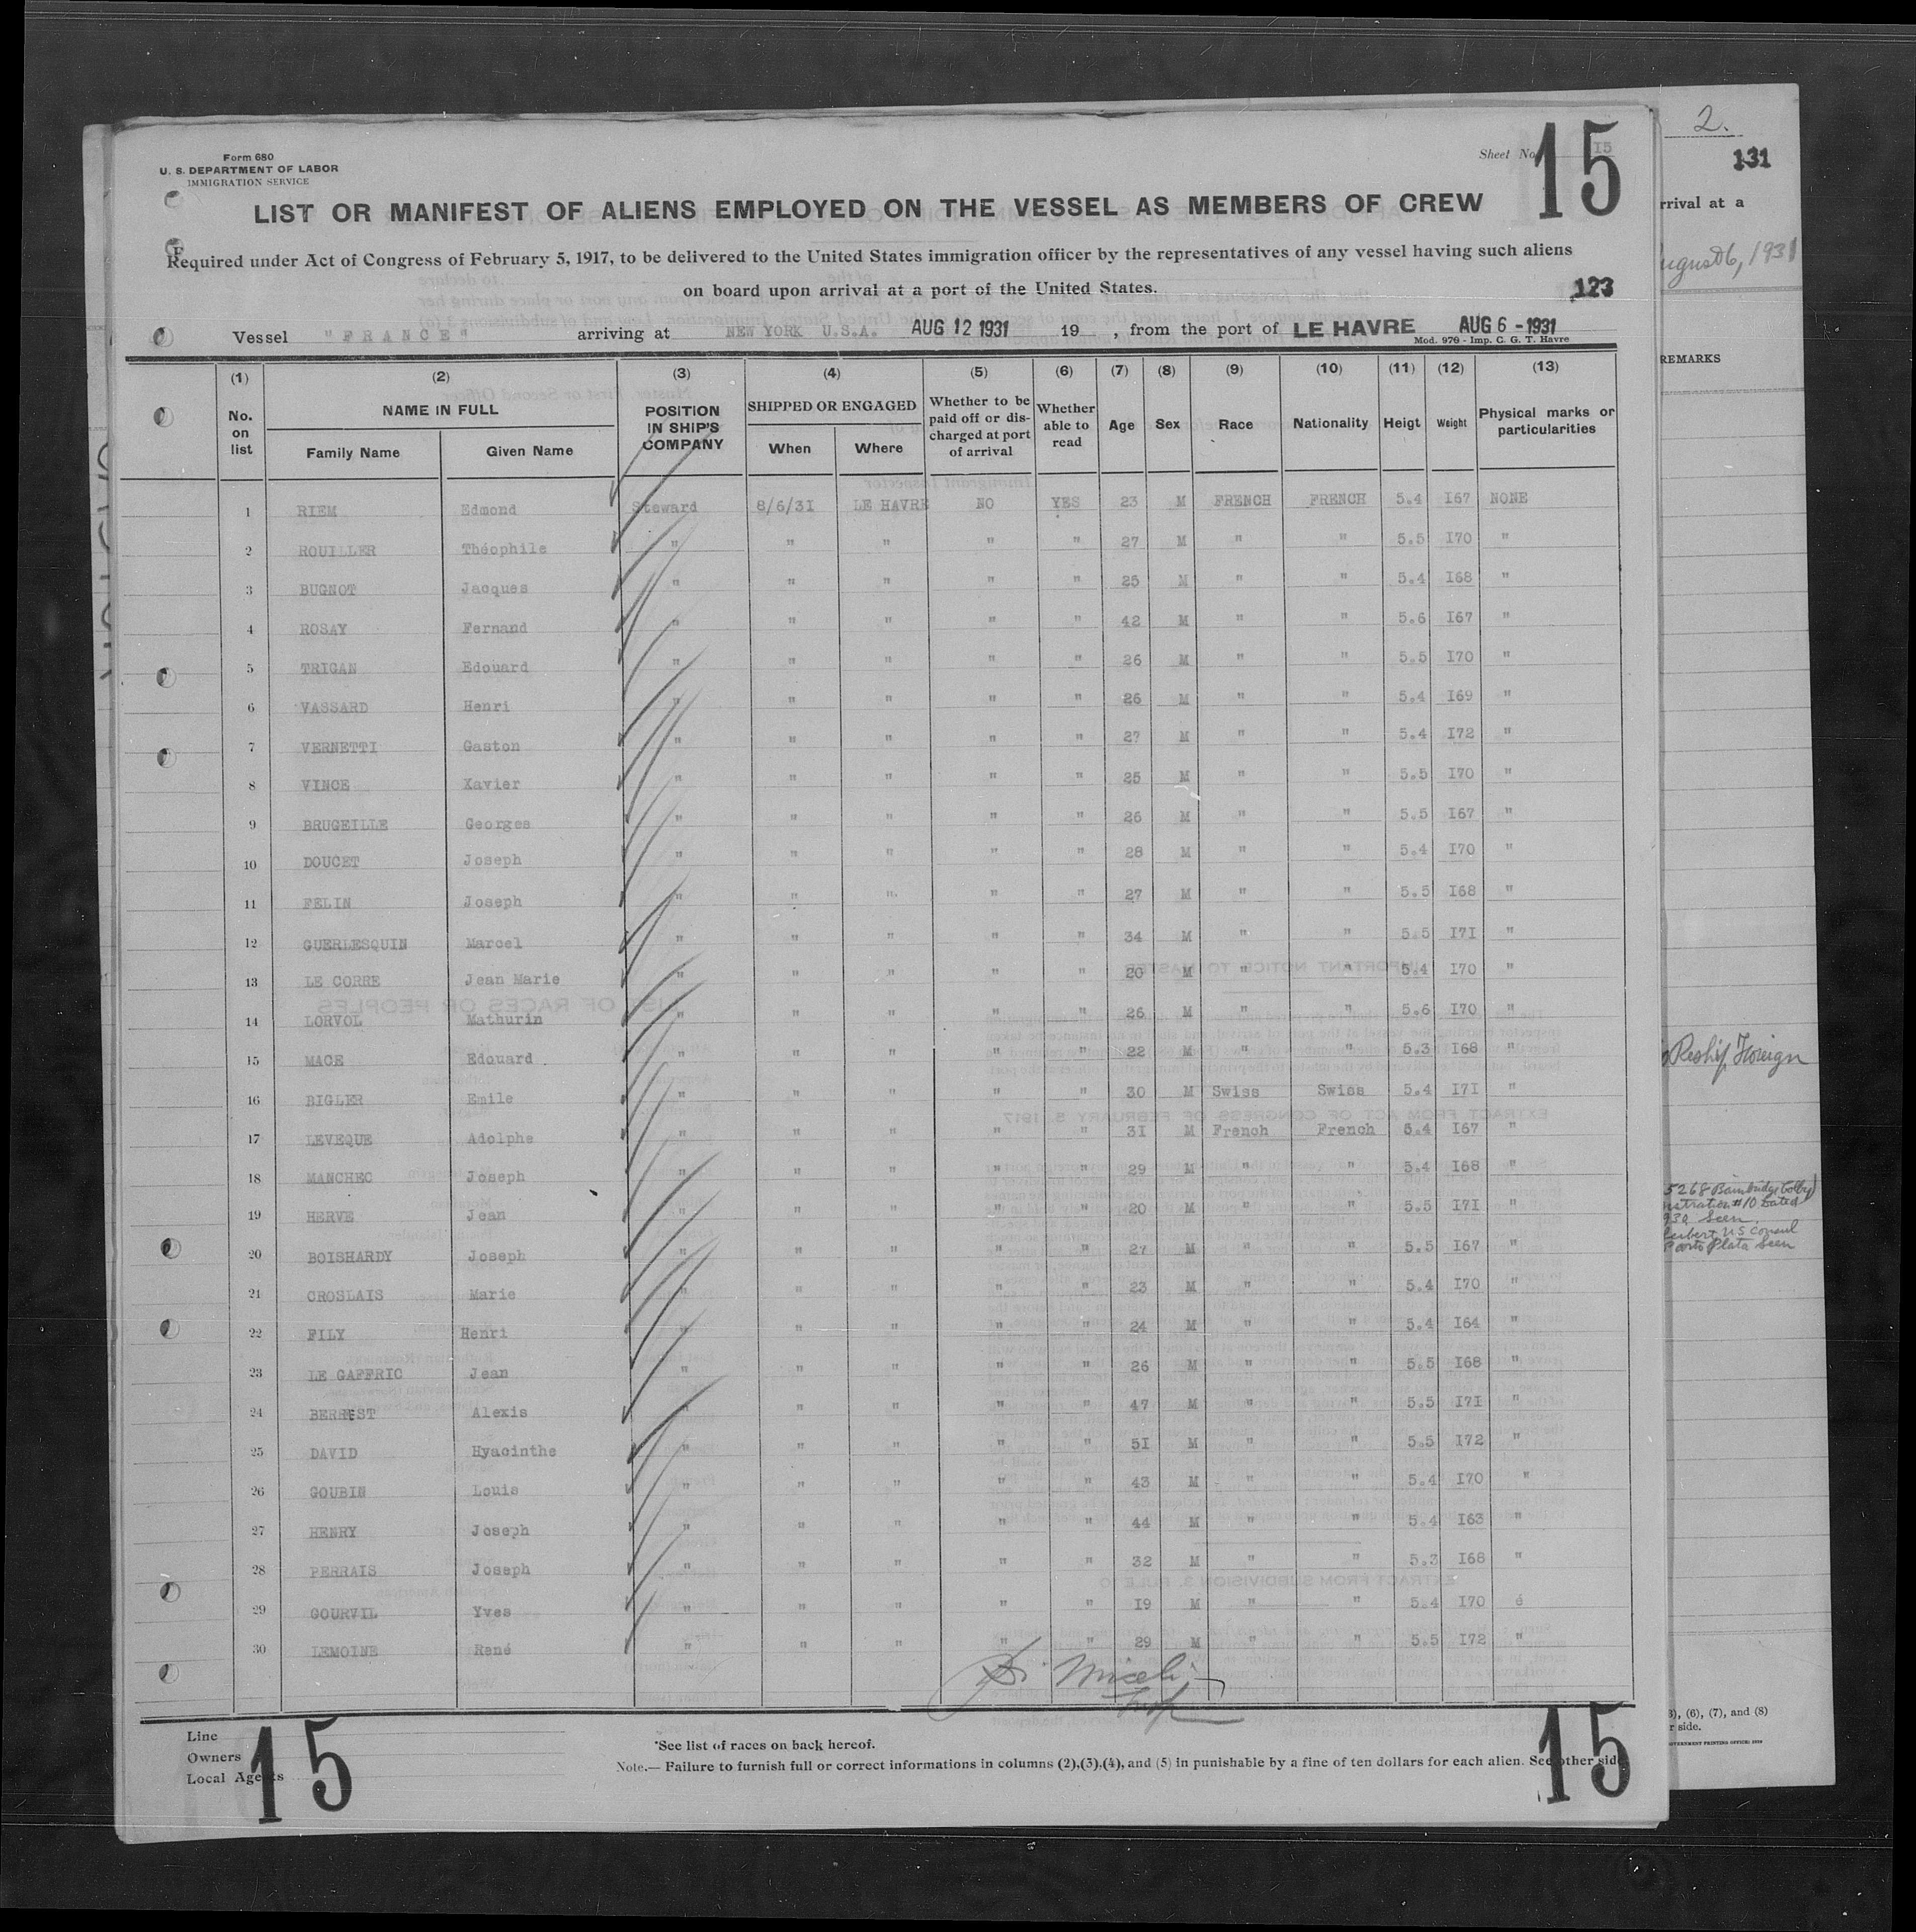 2.
131
rrival at a
ugust 6, 1931
REMARKS
Reship Foreign
5268 Bainbridge Colby
nstration #10 Dated
930 Seen
US Consul
Porto Plata Seen
3), (6), (7), and (8)
r side.
OVERNMENT PRINTING OFFICE: 1929
Form 680
U. S. DEPARTMENT OF LABOR
IMMIGRATION SERVICE
Sheet No. 15
15
LIST OR MANIFEST OF ALIENS EMPLOYED ON THE VESSEL AS MEMBERS OF CREW
Required under Act of Congress of February 5, 1917, to be delivered to the United States immigration officer by the representatives of any vessel having such aliens
on board upon arrival at a port of the United States.
123
Vessel "FRANCE" arriving at NEW YORK U.S.A. AUG 12 1931 19 , from the port of LE HAVRE AUG 6 - 1931
Mod. 970 - Imp. C. G. T. Havre
(1) (2) (3) (4) (5) (6) (7) (8) (9) (10) (11) (12) (13)
No. on list NAME IN FULL POSITION IN SHIP'S COMPANY SHIPPED OR ENGAGED Whether to be paid off or discharged at port of arrival Whether able to read Age Sex Race Nationality Heigt Weight Physical marks or particularities
Family Name Given Name When Where
1 RIEM Edmond Steward 8/6/31 LE HAVRE NO YES 23 M FRENCH FRENCH 5.4 I67 NONE
2 ROUILLER Théophile " " " " " 27 M " " 5.5 I70 "
3 BUGNOT Jacques " " " " " 25 M " " 5.4 I68 "
4 ROSAY Fernand " " " " " 42 M " " 5.6 I67 "
5 TRIGAN Edouard " " " " " 26 M " " 5.5 I70 "
6 VASSARD Henri " " " " " 26 M " " 5.4 I69 "
7 VERNETTI Gaston " " " " " 27 M " " 5.4 I72 "
8 VINCE Xavier " " " " " 25 M " " 5.5 I70 "
9 BRUGEILLE Georges " " " " " 26 M " " 5.5 I67 "
10 DOUCET Joseph " " " " " 28 M " " 5.4 I70 "
11 FELIN Joseph " " " " " 27 M " " 5.5 I68 "
12 GUERLESQUIN Marcel " " " " " 34 M " " 5.5 I7I "
13 LE CORRE Jean Marie " " " " " 20 M " " 5.4 I70 "
14 LORVOL Mathurin " " " " " 26 M " " 5.6 I70 "
15 MACE Edouard " " " " " 22 M " " 5.3 I68 "
16 BIGLER Emile " " " " " 30 M Swiss Swiss 5.4 I7I "
17 LEVEQUE Adolphe " " " " " 3I M French French 5.4 I67 "
18 MANCHEC Joseph " " " " " 29 M " " 5.4 I68 "
19 HERVE Jean " " " " " 20 M " " 5.5 I7I "
20 BOISHARDY Joseph " " " " " 27 M " " 5.5 I67 "
21 CROSLAIS Marie " " " " " 23 M " " 5.4 I70 "
22 FILY Henri " " " " " 24 M " " 5.4 I64 "
23 LE GAFFRIC Jean " " " " " 26 M " " 5.5 I68 "
24 BERREST Alexis " " " " " 47 M " " 5.5 I7I "
25 DAVID Hyacinthe " " " " " 5I M " " 5.5 I72 "
26 GOUBIN Louis " " " " " 43 M " " 5.4 I70 "
27 HENRY Joseph " " " " " 44 M " " 5.4 I63 "
28 PERRAIS Joseph " " " " " 32 M " " 5.3 I68 "
29 GOURVIL Yves " " " " " I9 M " " 5.4 I70 é
30 LEMOINE René " " " " " 29 M " " 5.5 I72 "
Insp
Line
Owners
Local Agents
15
*See list of races on back hereof.
Note.— Failure to furnish full or correct informations in columns (2),(3),(4), and (5) in punishable by a fine of ten dollars for each alien. See other side
15